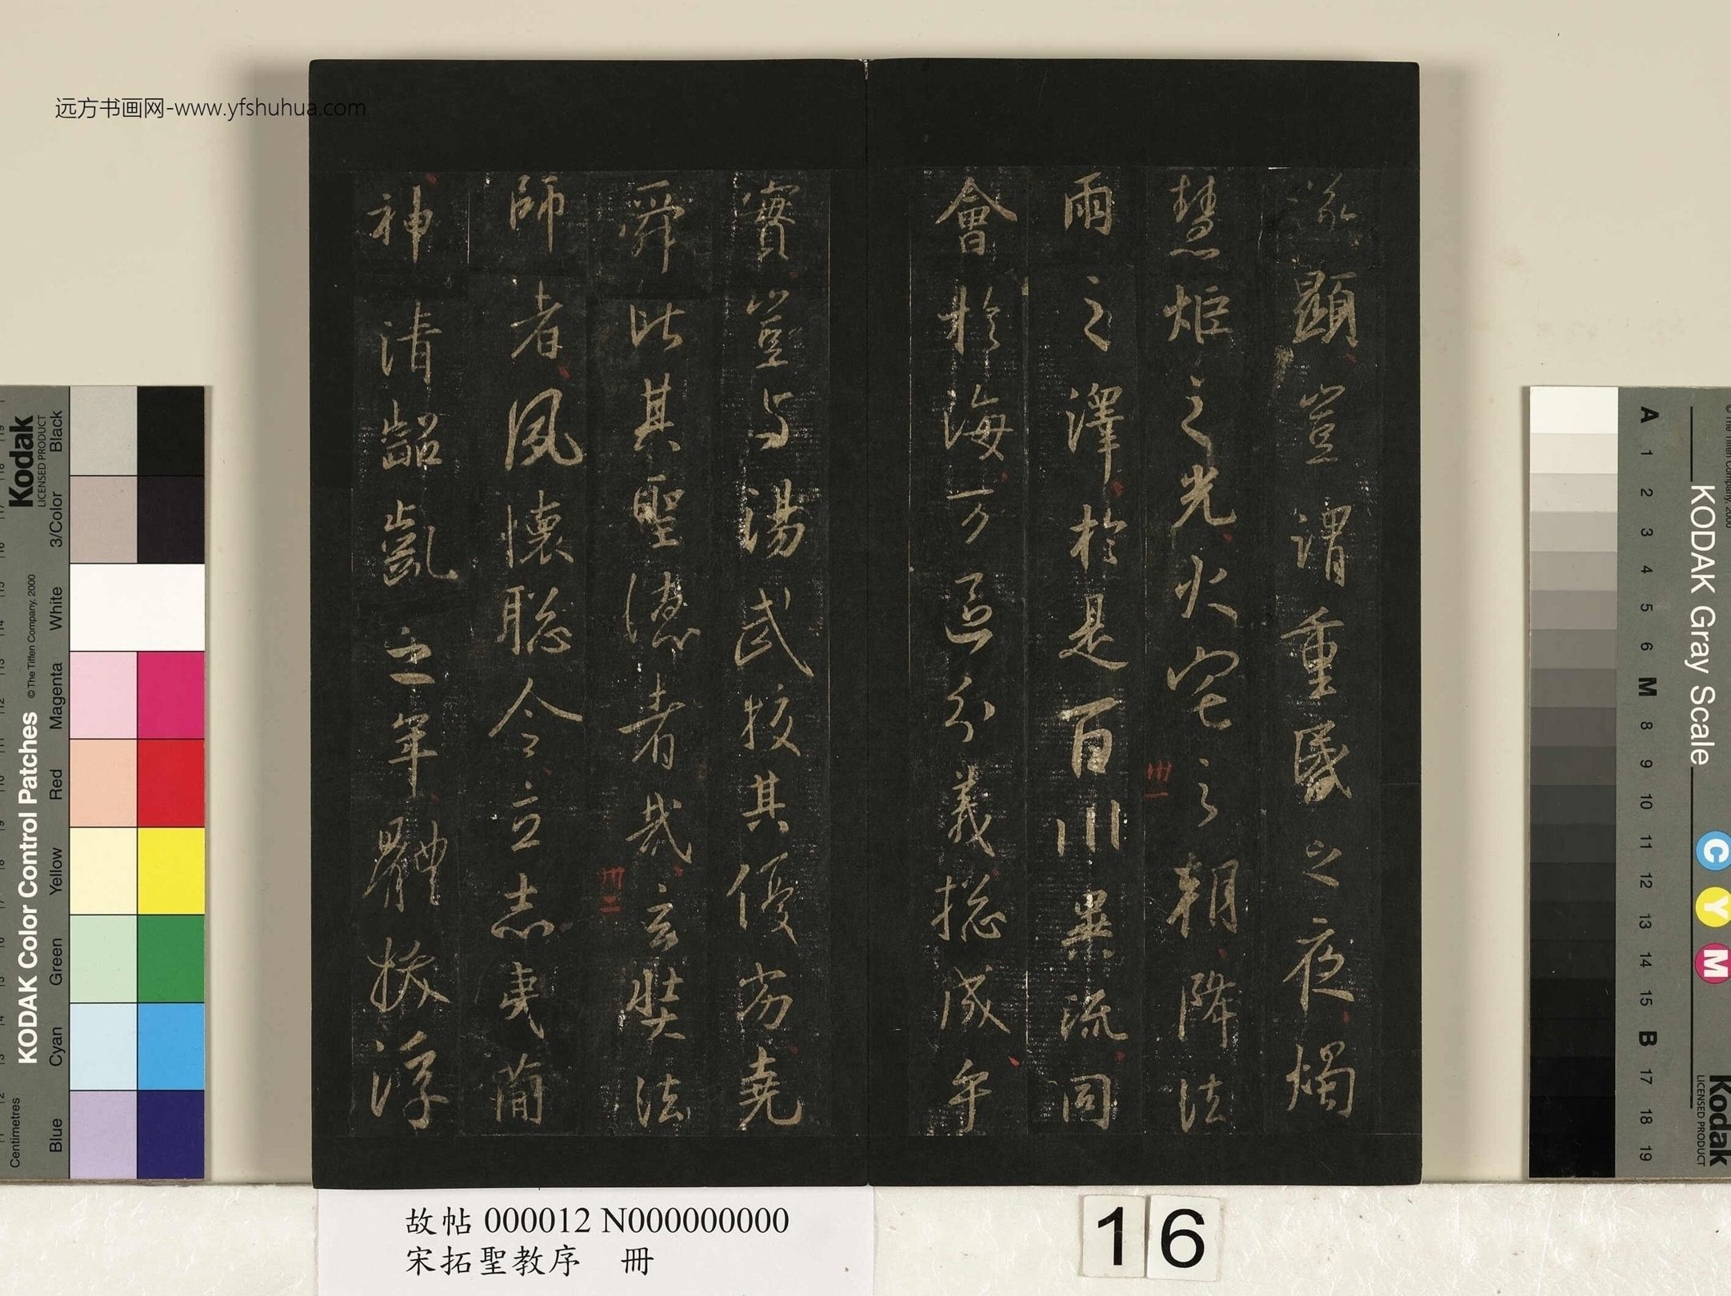 远方书画网-www.yfshuhua.com
遂顯豈謂重昏之夜燭
慧炬之光火宅之朝降法
雨之澤於是百川異流同
會於海万區分義揔成乎
實豈与湯武挍其優劣堯
舜比其聖德者哉玄奘法
師者夙懷聡令立志夷簡
神清齠齔之年體拔浮
卅一
卅二
故帖 000012 N000000000
宋拓聖教序 冊
16
Kodak
LICENSED PRODUCT
KODAK Color Control Patches
© The Tiffen Company, 2000
Centimetres
Black
3/Color
White
Magenta
Red
Yellow
Green
Cyan
Blue
KODAK Gray Scale
A 1 2 3 4 5 6 M 8 9 10 11 12 13 14 15 B 17 18 19
C
Y
M
Kodak
LICENSED PRODUCT